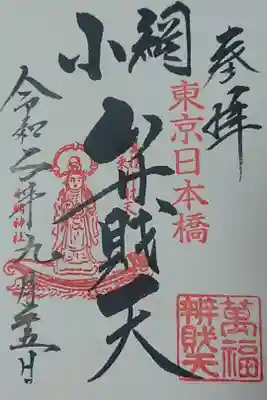 奉拝
東京日本橋
小網
弁財天
令和二年九月廿五日
萬福
辨財天